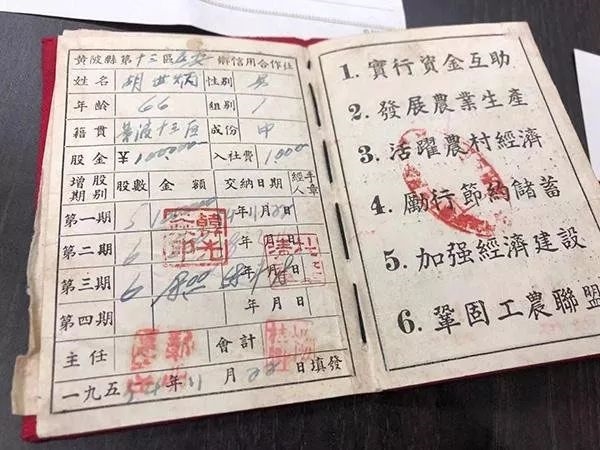 黄陂縣第十三區 鄉信用合作社
姓名 胡世炳 性別 男
年齡 66 組別 1
籍貫 黄陂十三區 成份 中
股金 ¥ 入社費 1000
增股期別 股數 金額 交納日期 經手人章
第一期 5 年 月 日
第二期 6 年 月 日
第三期 6 1.800 年 月 日
第四期 年 月 日
主任 會計
一九五 54 年 11 月 22 日填發
1. 實行資金互助
2. 發展農業生產
3. 活躍農村經濟
4. 勵行節約儲蓄
5. 加强經濟建設
6. 鞏固工農聯盟